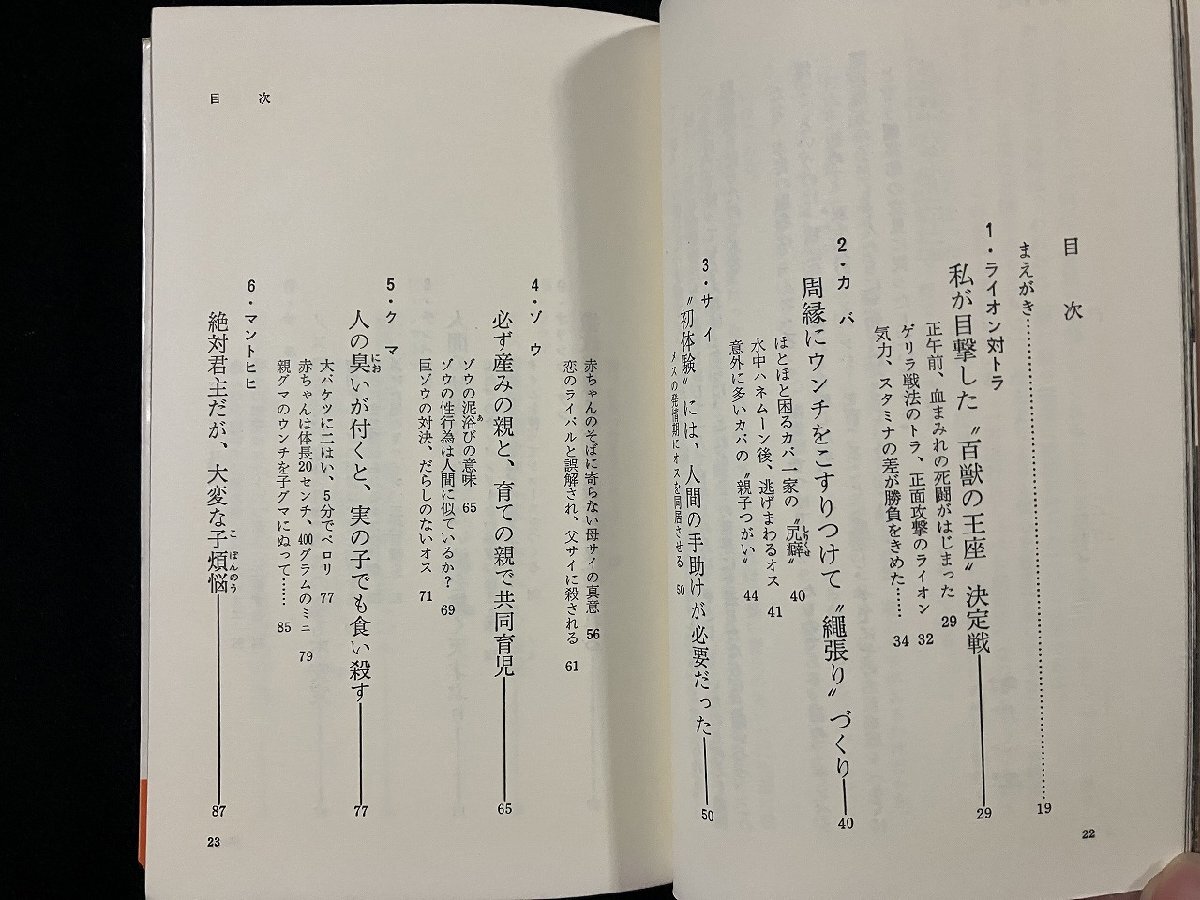 目次
まえがき……19
1・ライオン対トラ
私が目撃した〝百獣の王座〟決定戦——29
正午前、血まみれの死闘がはじまった 29
ゲリラ戦法のトラ、正面攻撃のライオン 32
気力、スタミナの差が勝負をきめた…… 34
2・カバ
周縁にウンチをこすりつけて〝繩張り〟づくり——40
ほとほと困るカバ一家の〝尻癖〟 40
しりくせ
水中ハネムーン後、逃げまわるオス 41
意外に多いカバの〝親子つがい〟 44
3・サイ
〝初体験〟には、人間の手助けが必要だった——50
メスの発情期にオスを同居させる 50
22
目次
赤ちゃんのそばに寄らない母サイの真意 56
恋のライバルと誤解され、父サイに殺される 61
4・ゾウ
必ず産みの親と、育ての親で共同育児——65
ゾウの泥浴びの意味 65
あ
ゾウの性行為は人間に似ているか? 69
巨ゾウの対決、だらしのないオス 71
5・クマ
人の臭いが付くと、実の子でも食い殺す——77
にお
大バケツに二はい、5分でペロリ 77
赤ちゃんは体長20センチ、400グラムのミニ 79
親グマのウンチを子グマにぬって…… 85
6・マントヒヒ
絶対君主だが、大変な子煩悩——87
こぼんのう
23